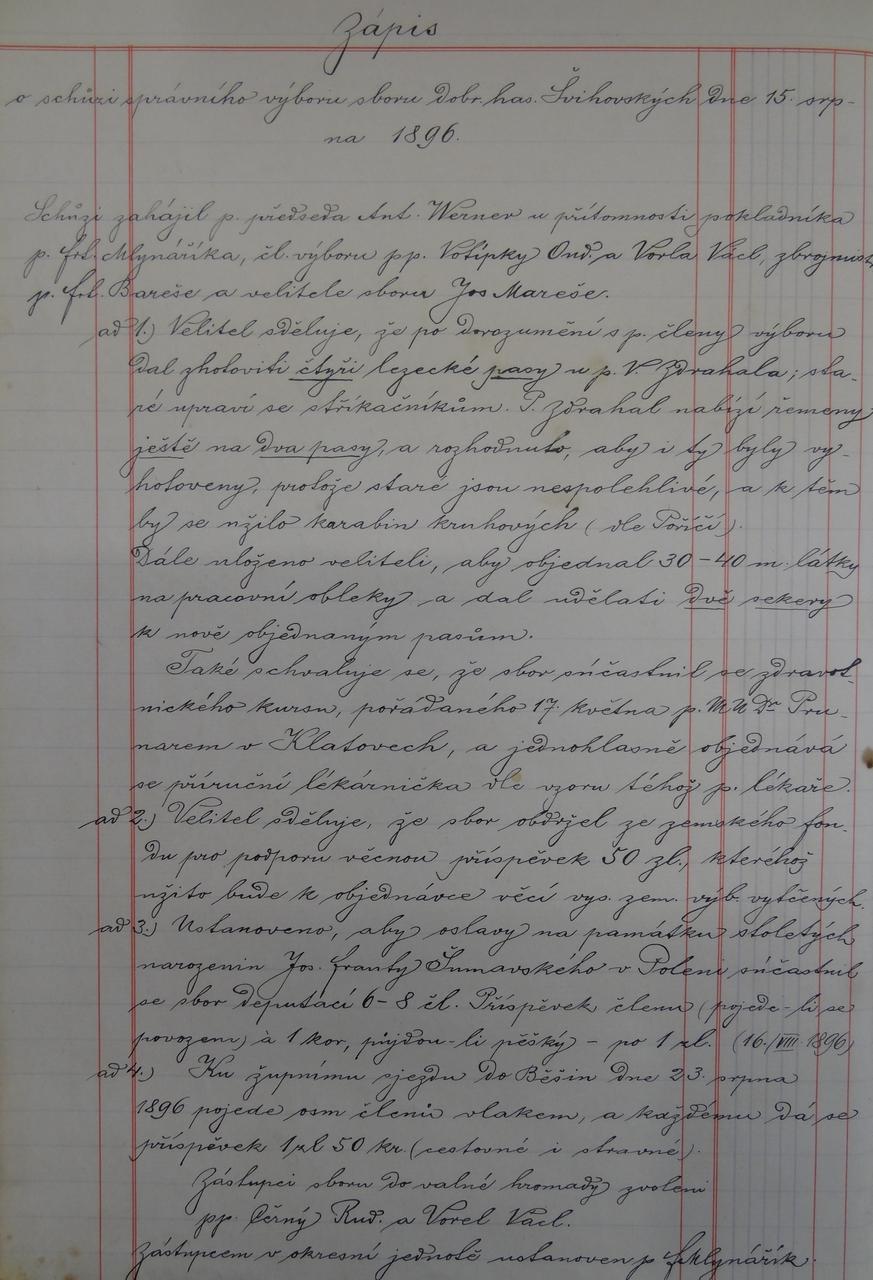 Zápis
o schůzi správního výboru sboru dobr. has. Švihovských dne 15. srp-
na 1896.
Schůzi zahájil p. předseda Ant. Werner u přítomnosti pokladníka
p. frt. Mlynáříka, čl. výboru pp. Votípky Ond. a Vorla Václ, zbrojmist.
p. frt. Bareše a velitele sboru Jos Mareše.
ad 1.) Velitel sděluje, že po dorozumění s p. členy výboru
dal zhotoviti čtyři lezecké pasy u p. V. Zdrahala; sta-
ré upraví se stříkačníkům. P. Zdrahal nabízí řemeny
ještě na dva pasy, a rozhodnuto, aby i ty byly vy-
hotoveny, protože staré jsou nespolehlivé, a k těm
by se užilo karabin kruhových (dle Poříčí).
Dále uloženo veliteli, aby objednal 30-40 m. látky
na pracovní obleky a dal udělati dvě sekery
k nově objednaným pasům.
Také schvaluje se, že sbor súčastnil se zdravot-
nického kursu, pořádaného 17. května p. MUDr Pru-
narem v Klatovech, a jednohlasně objednává
se příruční lékárnička dle vzoru téhož p. lékaře.
ad 2.) Velitel sděluje, že sbor obdržel ze zemského fon-
du pro podporu věcnou příspěvek 50 zl., kteréhož
užito bude k objednávce věcí vys. zem. výb. vytčených.
ad 3.) Ustanoveno, aby oslavy na památku stoletých
narozenin Jos. franty Šumavského v Poleni súčastnil
se sbor deputací 6-8 čl. Příspěvek členu (pojede-li se
povozem) à 1 kor, půjdou-li pěšky - po 1 zl. (16./VIII. 1896)
ad 4.) Ku župnímu sjezdu do Běšin dne 23. srpna
1896 pojede osm členů vlakem, a každému dá se
příspěvek 1 zl 50 kr. (cestovné i stravné).
Zástupci sboru do valné hromady zvoleni
pp. Černý Rud. a Vorel Václ.
Zástupcem v okresní jednotě ustanoven p f Mlynářík.